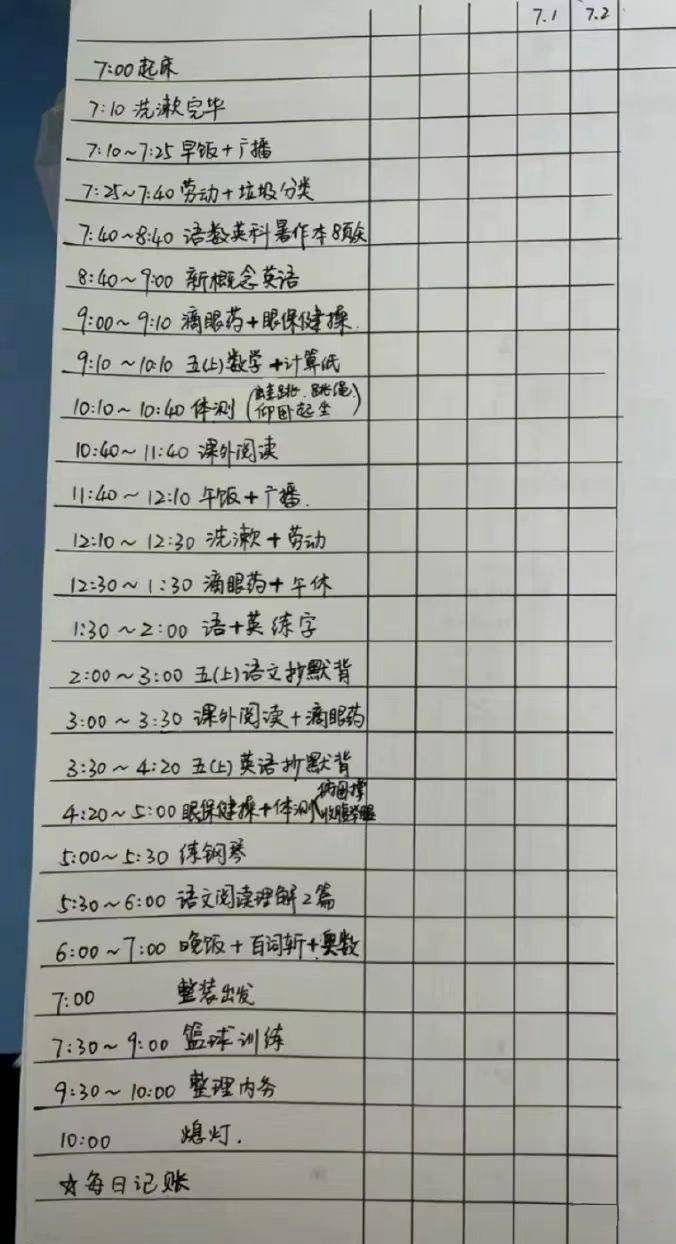 7.1 7.2
7:00 起床
7:10 洗漱完毕
7:10~7:25 早饭+广播
7:25~7:40 劳动+垃圾分类
7:40~8:40 语数英科暑作本8页
8:40~9:00 新概念英语
9:00~9:10 滴眼药+眼保健操.
9:10~10:10 五(上)数学+计算纸
10:10~10:40 体测(蛙跳.跳绳.仰卧起坐)
10:40~11:40 课外阅读
11:40~12:10 午饭+广播.
12:10~12:30 洗漱+劳动
12:30~1:30 滴眼药+午休
1:30~2:00 语+英练字
2:00~3:00 五(上)语文抄默背
3:00~3:30 课外阅读+滴眼药
3:30~4:20 五(上)英语抄默背
4:20~5:00 眼保健操+体测(俯卧撑 收腹举腿
5:00~5:30 练钢琴
5:30~6:00 语文阅读理解2篇
6:00~7:00 晚饭+百词斩+奥数
7:00 整装出发
7:30~9:00 篮球训练
9:30~10:00 整理内务
10:00 熄灯.
☆每日记账